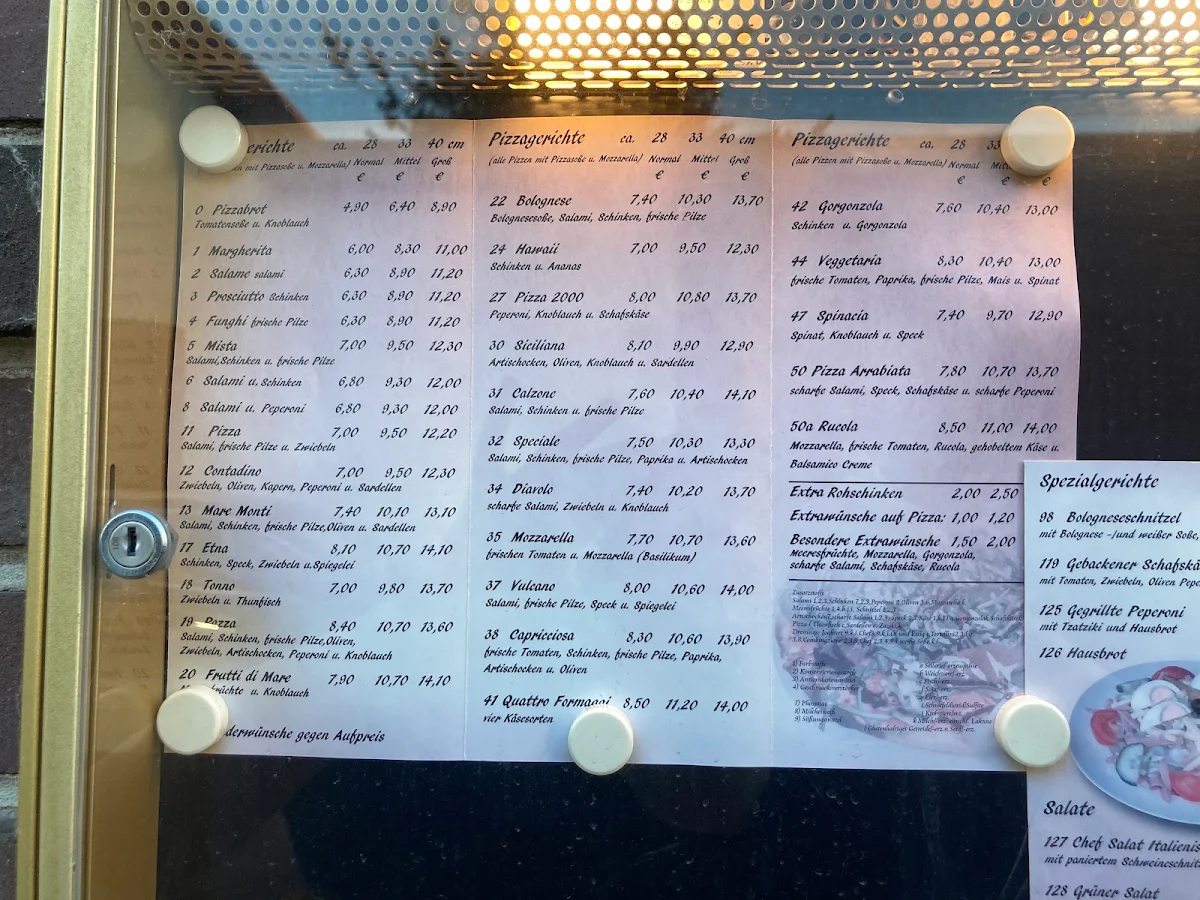 erichte ca. 28 33 40 cm
en mit Pizzasoße u. Mozzarella) Normal Mittel Groß
€ € €
0 Pizzabrot 4,90 6,40 8,90
Tomatensoße u. Knoblauch
1 Margherita 6,00 8,30 11,00
2 Salame salami 6,30 8,90 11,20
3 Prosciutto Schinken 6,30 8,90 11,20
4 Funghi frische Pilze 6,30 8,90 11,20
5 Mista 7,00 9,50 12,30
Salami,Schinken u. frische Pilze
6 Salami u. Schinken 6,80 9,30 12,00
8 Salami u. Peperoni 6,80 9,30 12,00
11 Pizza 7,00 9,50 12,20
Salami, frische Pilze u. Zwiebeln
12 Contadino 7,00 9,50 12,30
Zwiebeln, Oliven, Kapern, Peperoni u. Sardellen
13 Mare Monti 7,40 10,10 13,10
Salami, Schinken, frische Pilze,Oliven u. Sardellen
17 Etna 8,10 10,70 14,10
Schinken, Speck, Zwiebeln u.Spiegelei
18 Tonno 7,00 9,80 13,70
Zwiebeln u. Thunfisch
19 Pazza 8,40 10,70 13,60
Salami, Schinken, frische Pilze,Oliven,
Zwiebeln, Artischocken, Peperoni u. Knoblauch
20 Frutti di Mare 7,90 10,70 14,10
früchte u. Knoblauch
derwünsche gegen Aufpreis
Pizzagerichte ca. 28 33 40 cm
(alle Pizzen mit Pizzasoße u. Mozzarella) Normal Mittel Groß
€ € €
22 Bolognese 7,40 10,30 13,70
Bolognesesoße, Salami, Schinken, frische Pilze
24 Hawaii 7,00 9,50 12,30
Schinken u. Ananas
27 Pizza 2000 8,00 10,80 13,70
Peperoni, Knoblauch u. Schafskäse
30 Siciliana 8,10 9,90 12,90
Artischocken, Oliven, Knoblauch u. Sardellen
31 Calzone 7,60 10,40 14,10
Salami, Schinken u. frische Pilze
32 Speciale 7,50 10,30 13,30
Salami, Schinken, frische Pilze, Paprika u. Artischocken
34 Diavolo 7,40 10,20 13,70
scharfe Salami, Zwiebeln u. Knoblauch
35 Mozzarella 7,70 10,70 13,60
frischen Tomaten u. Mozzarella (Basilikum)
37 Vulcano 8,00 10,60 14,00
Salami, frische Pilze, Speck u. Spiegelei
38 Capricciosa 8,30 10,60 13,90
frische Tomaten, Schinken, frische Pilze, Paprika,
Artischocken u. Oliven
41 Quattro Formaggi 8,50 11,20 14,00
vier Käsesorten
Pizzagerichte ca. 28 33
(alle Pizzen mit Pizzasoße u. Mozzarella) Normal Mitt
€ € €
42 Gorgonzola 7,60 10,40 13,00
Schinken u. Gorgonzola
44 Veggetaria 8,30 10,40 13,00
frische Tomaten, Paprika, frische Pilze, Mais u. Spinat
47 Spinacia 7,40 9,70 12,90
Spinat, Knoblauch u. Speck
50 Pizza Arrabiata 7,80 10,70 13,70
scharfe Salami, Speck, Schafskäse u. scharfe Peperoni
50a Rucola 8,50 11,00 14,00
Mozzarella, frische Tomaten, Rucola, gehobeltem Käse u.
Balsamico Creme
Extra Rohschinken 2,00 2,50
Extrawünsche auf Pizza: 1,00 1,20
Besondere Extrawünsche 1,50 2,00
Meeresfrüchte, Mozzarella, Gorgonzola,
scharfe Salami, Schafskäse, Rucola
Zusatzstoffe
1) Farbstoffe
4) Geschmacksverstärker
8) Milcheiweiß
9) Süßungsmittel
Spezialgerichte
98 Bologneseschnitzel
mit Bolognese -/und weißer Soße,
119 Gebackener Schafskä
mit Tomaten, Zwiebeln, Oliven Pepe
125 Gegrillte Peperoni
mit Tzatziki und Hausbrot
126 Hausbrot
Salate
127 Chef Salat Italienis
mit paniertem Schweineschnit
128 Grüner Salat